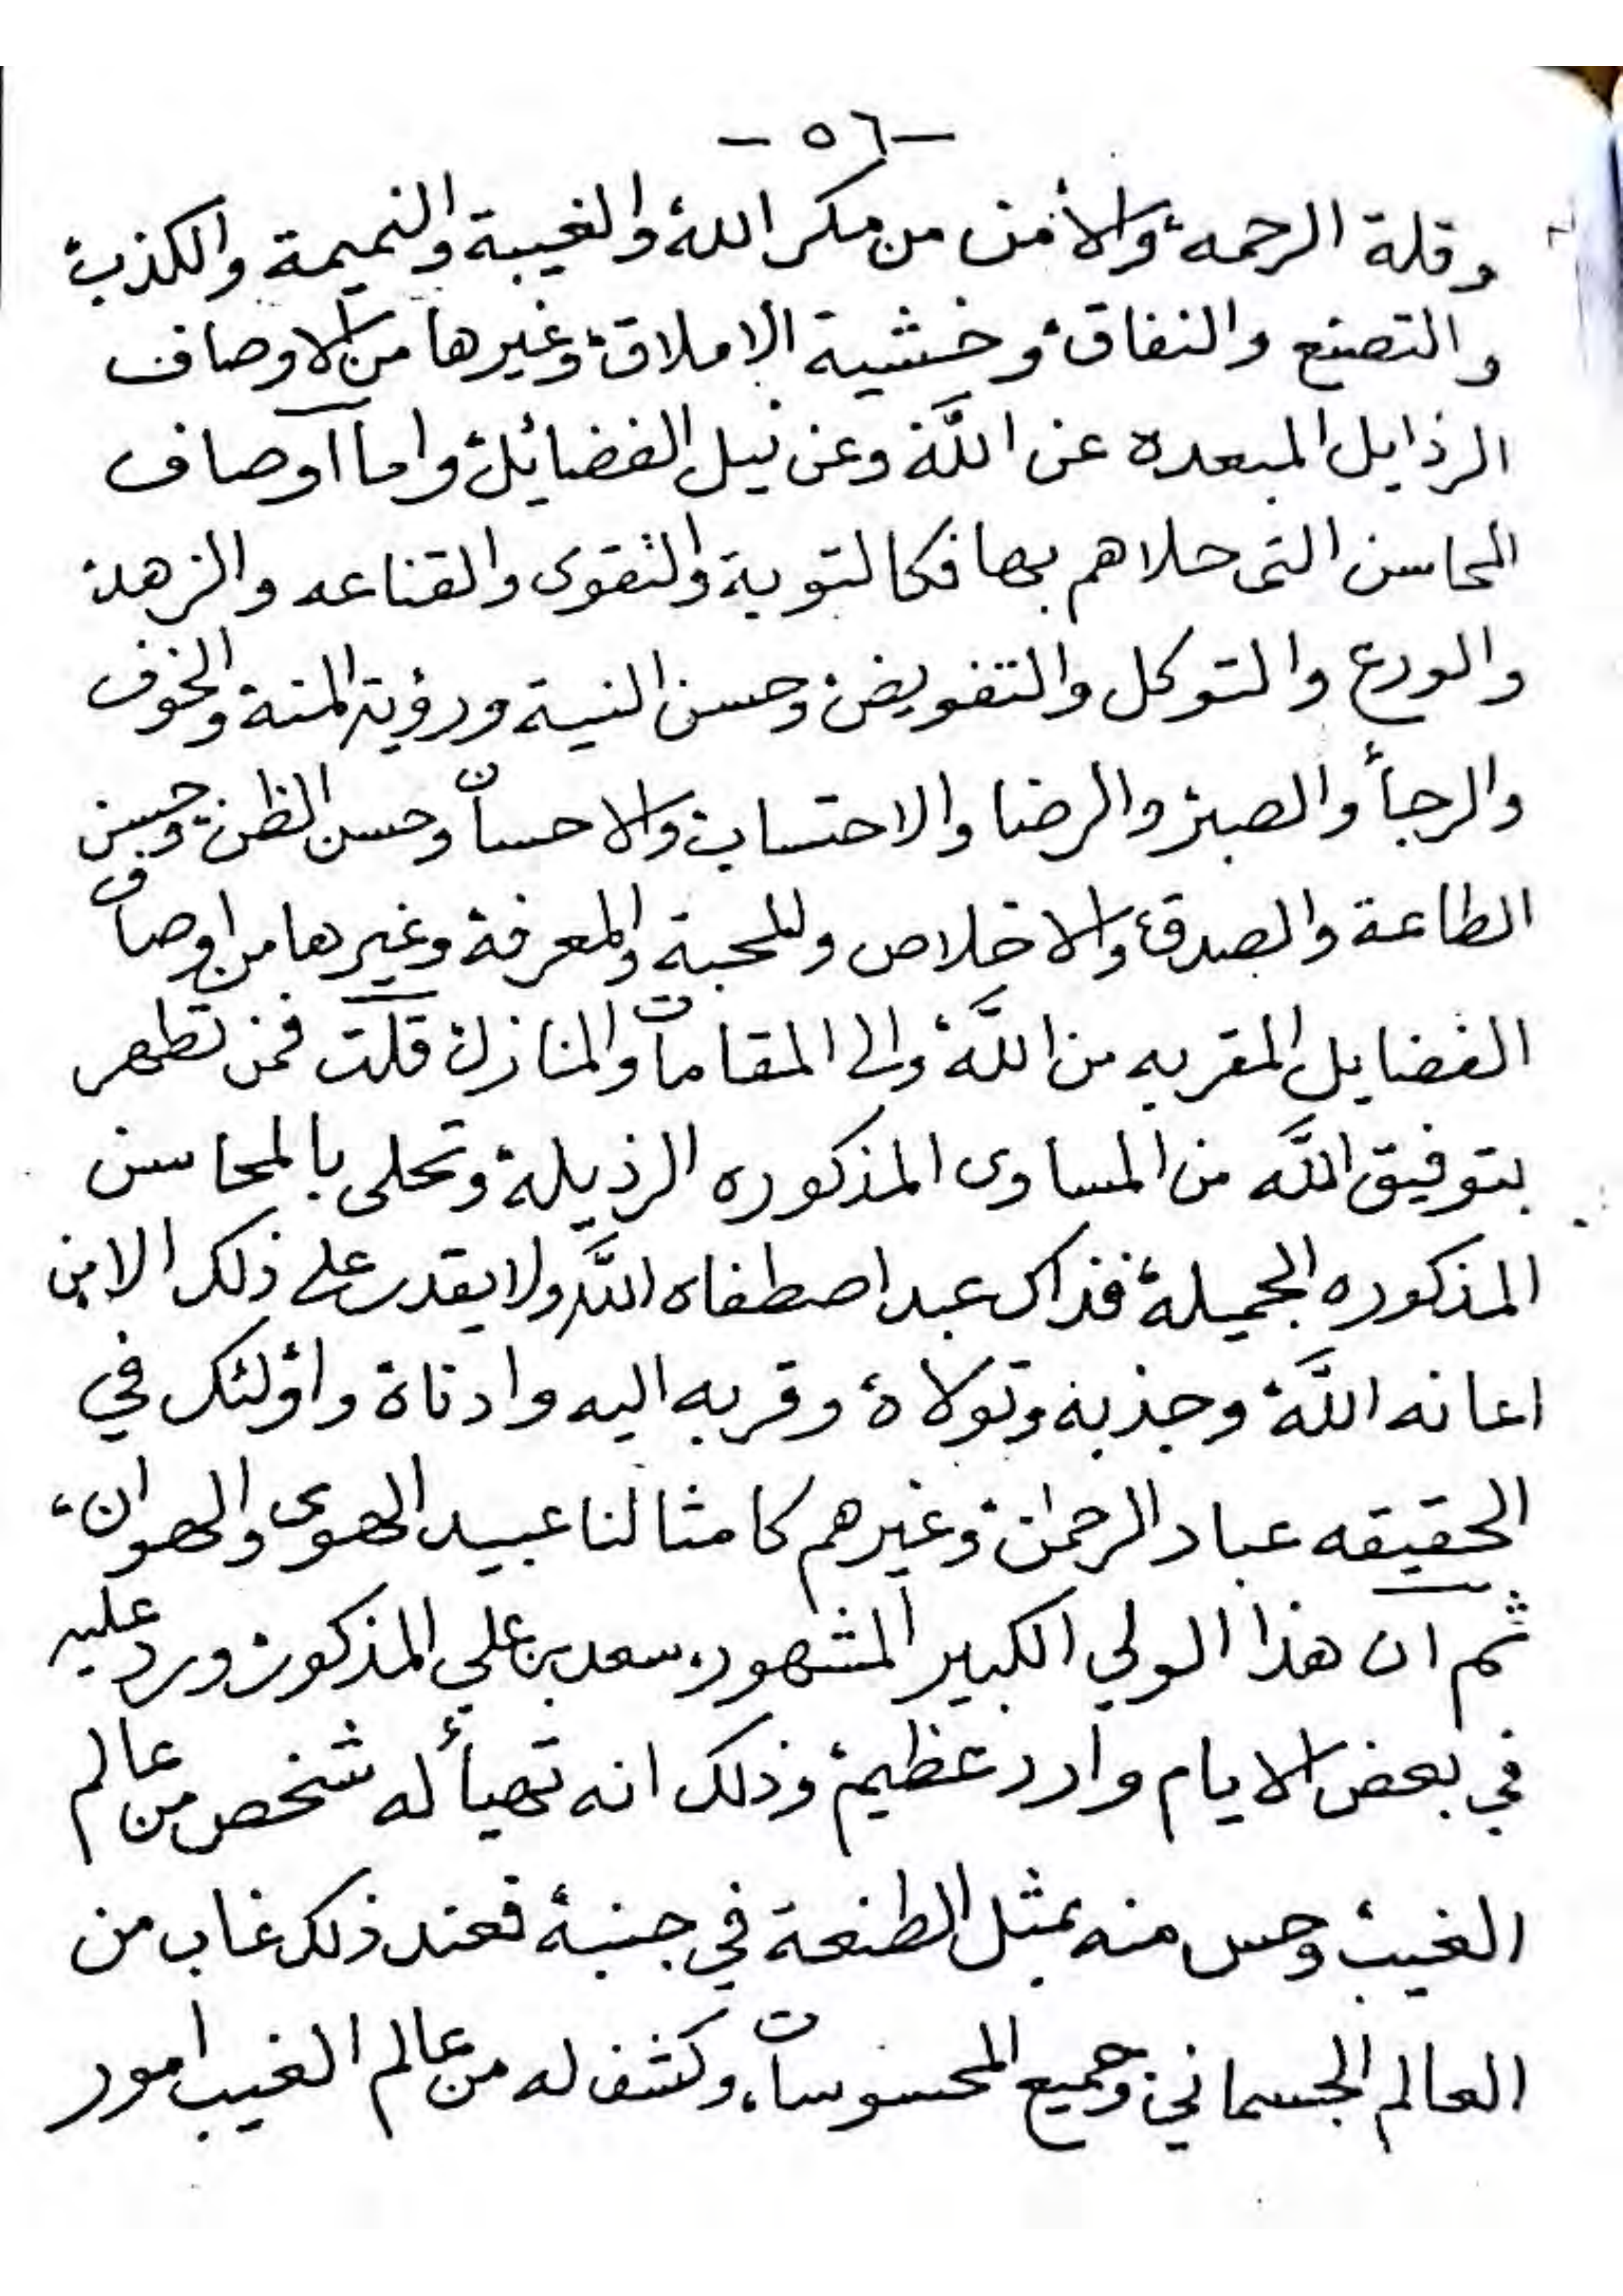 - ٥٦ -
وقلة الرحمه، والأمن من مكر الله، والغيبة والنميمة والكذب،
والتصنع والنفاق، وخشية الاملاق، وغيرها من الاوصاف
الرذايل المبعده عن اللَّه وعن نيل الفضائل، واما اوصاف
المحاسن التى حلاهم بها فكالتوبة والتقوى والقناعه والزهد،
والورع والتوكل والتفويض، وحسن النية ورؤية المنة والخوف
والرجأ والصبر، والرضا والاحتساب، والاحسان وحسن الظن، وحسن
الطاعة والصدق، والاخلاص وللمحبة والمعرفة، وغيرها من اوصاف
الفضايل المقربه من اللَّه، والى المقامات والمنازل، قلت فمن تطهر
بتوفيق اللَّه من المساوى المذكوره الرذيلة، وتحلى بالمحاسن
المذكوره الجميلة، فذاك عبد اصطفاه اللَّه ولا يقدر على ذلك الا من
اعانه اللَّه، وجذبه وتولاه، وقربه اليه وادناة واؤلئك في
الحقيقه عباد الرحمن، وغيرهم كامثالنا عبيد الهوى والهوان،
ثم ان هذا الولي الكبير المشهور، سعد بن علي المذكور، ورد عليه
في بعض الايام وارد عظيم، وذلك انه تهيأ له شخص من عالم
الغيب، وحس منه بمثل الطنعة في جنبة، فعند ذلك غاب من
العالم الجسماني، وجميع المحسوسات، وكشف له من عالم الغيب امور